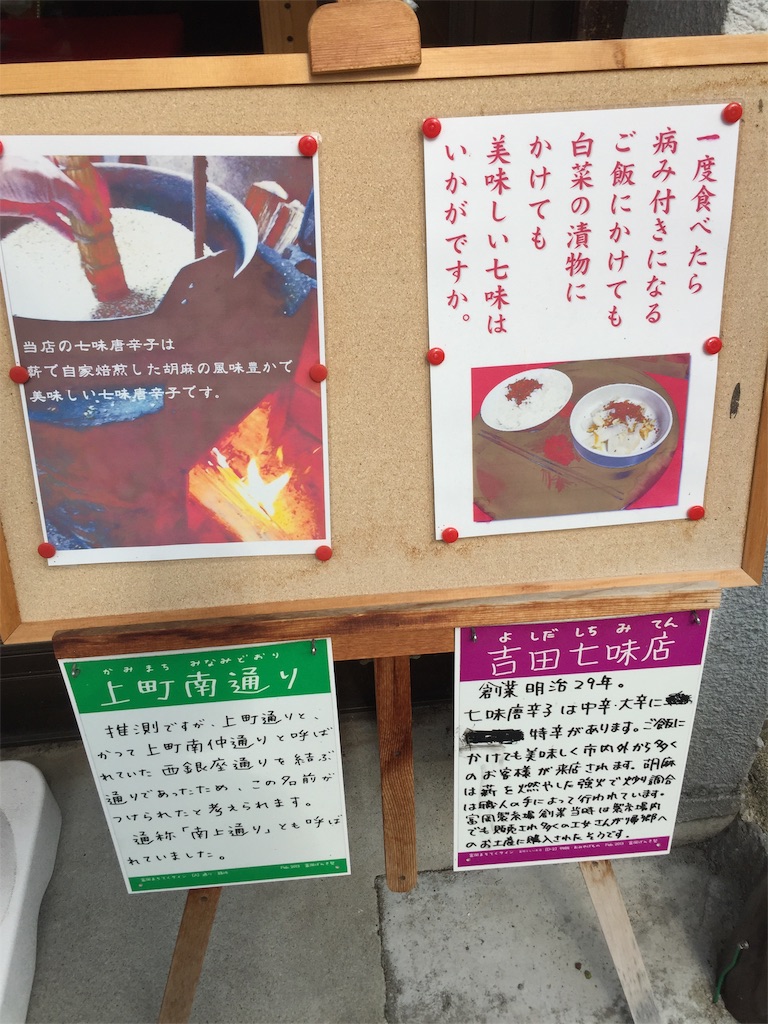 当店の七味唐辛子は
薪で自家焙煎した胡麻の風味豊かで
美味しい七味唐辛子です。
一度食べたら
病み付きになる
ご飯にかけても
白菜の漬物に
かけても
美味しい七味は
いかがですか。
かみまち みなみどおり
上町南通り
推測ですが、上町通りと、
かつて上町南仲通りと呼ば
れていた西銀座通りを結ぶ
通りであったため、この名前が
つけられたと考えられます。
通称「南上通り」とも呼ば
れていました。
よしだしちみてん
吉田七味店
創業明治29年。
七味唐辛子は中辛・大辛に
特辛があります。ご飯に
かけても美味しく市内外から多く
のお客様が来店されます。胡麻
は薪を燃やした強火で炒り調合
は職人の手によって行われています。
富岡製糸場創業当時は製糸場内
でも販売され多くの工女さんが帰郷へ
のお土産に購入されたそうです。